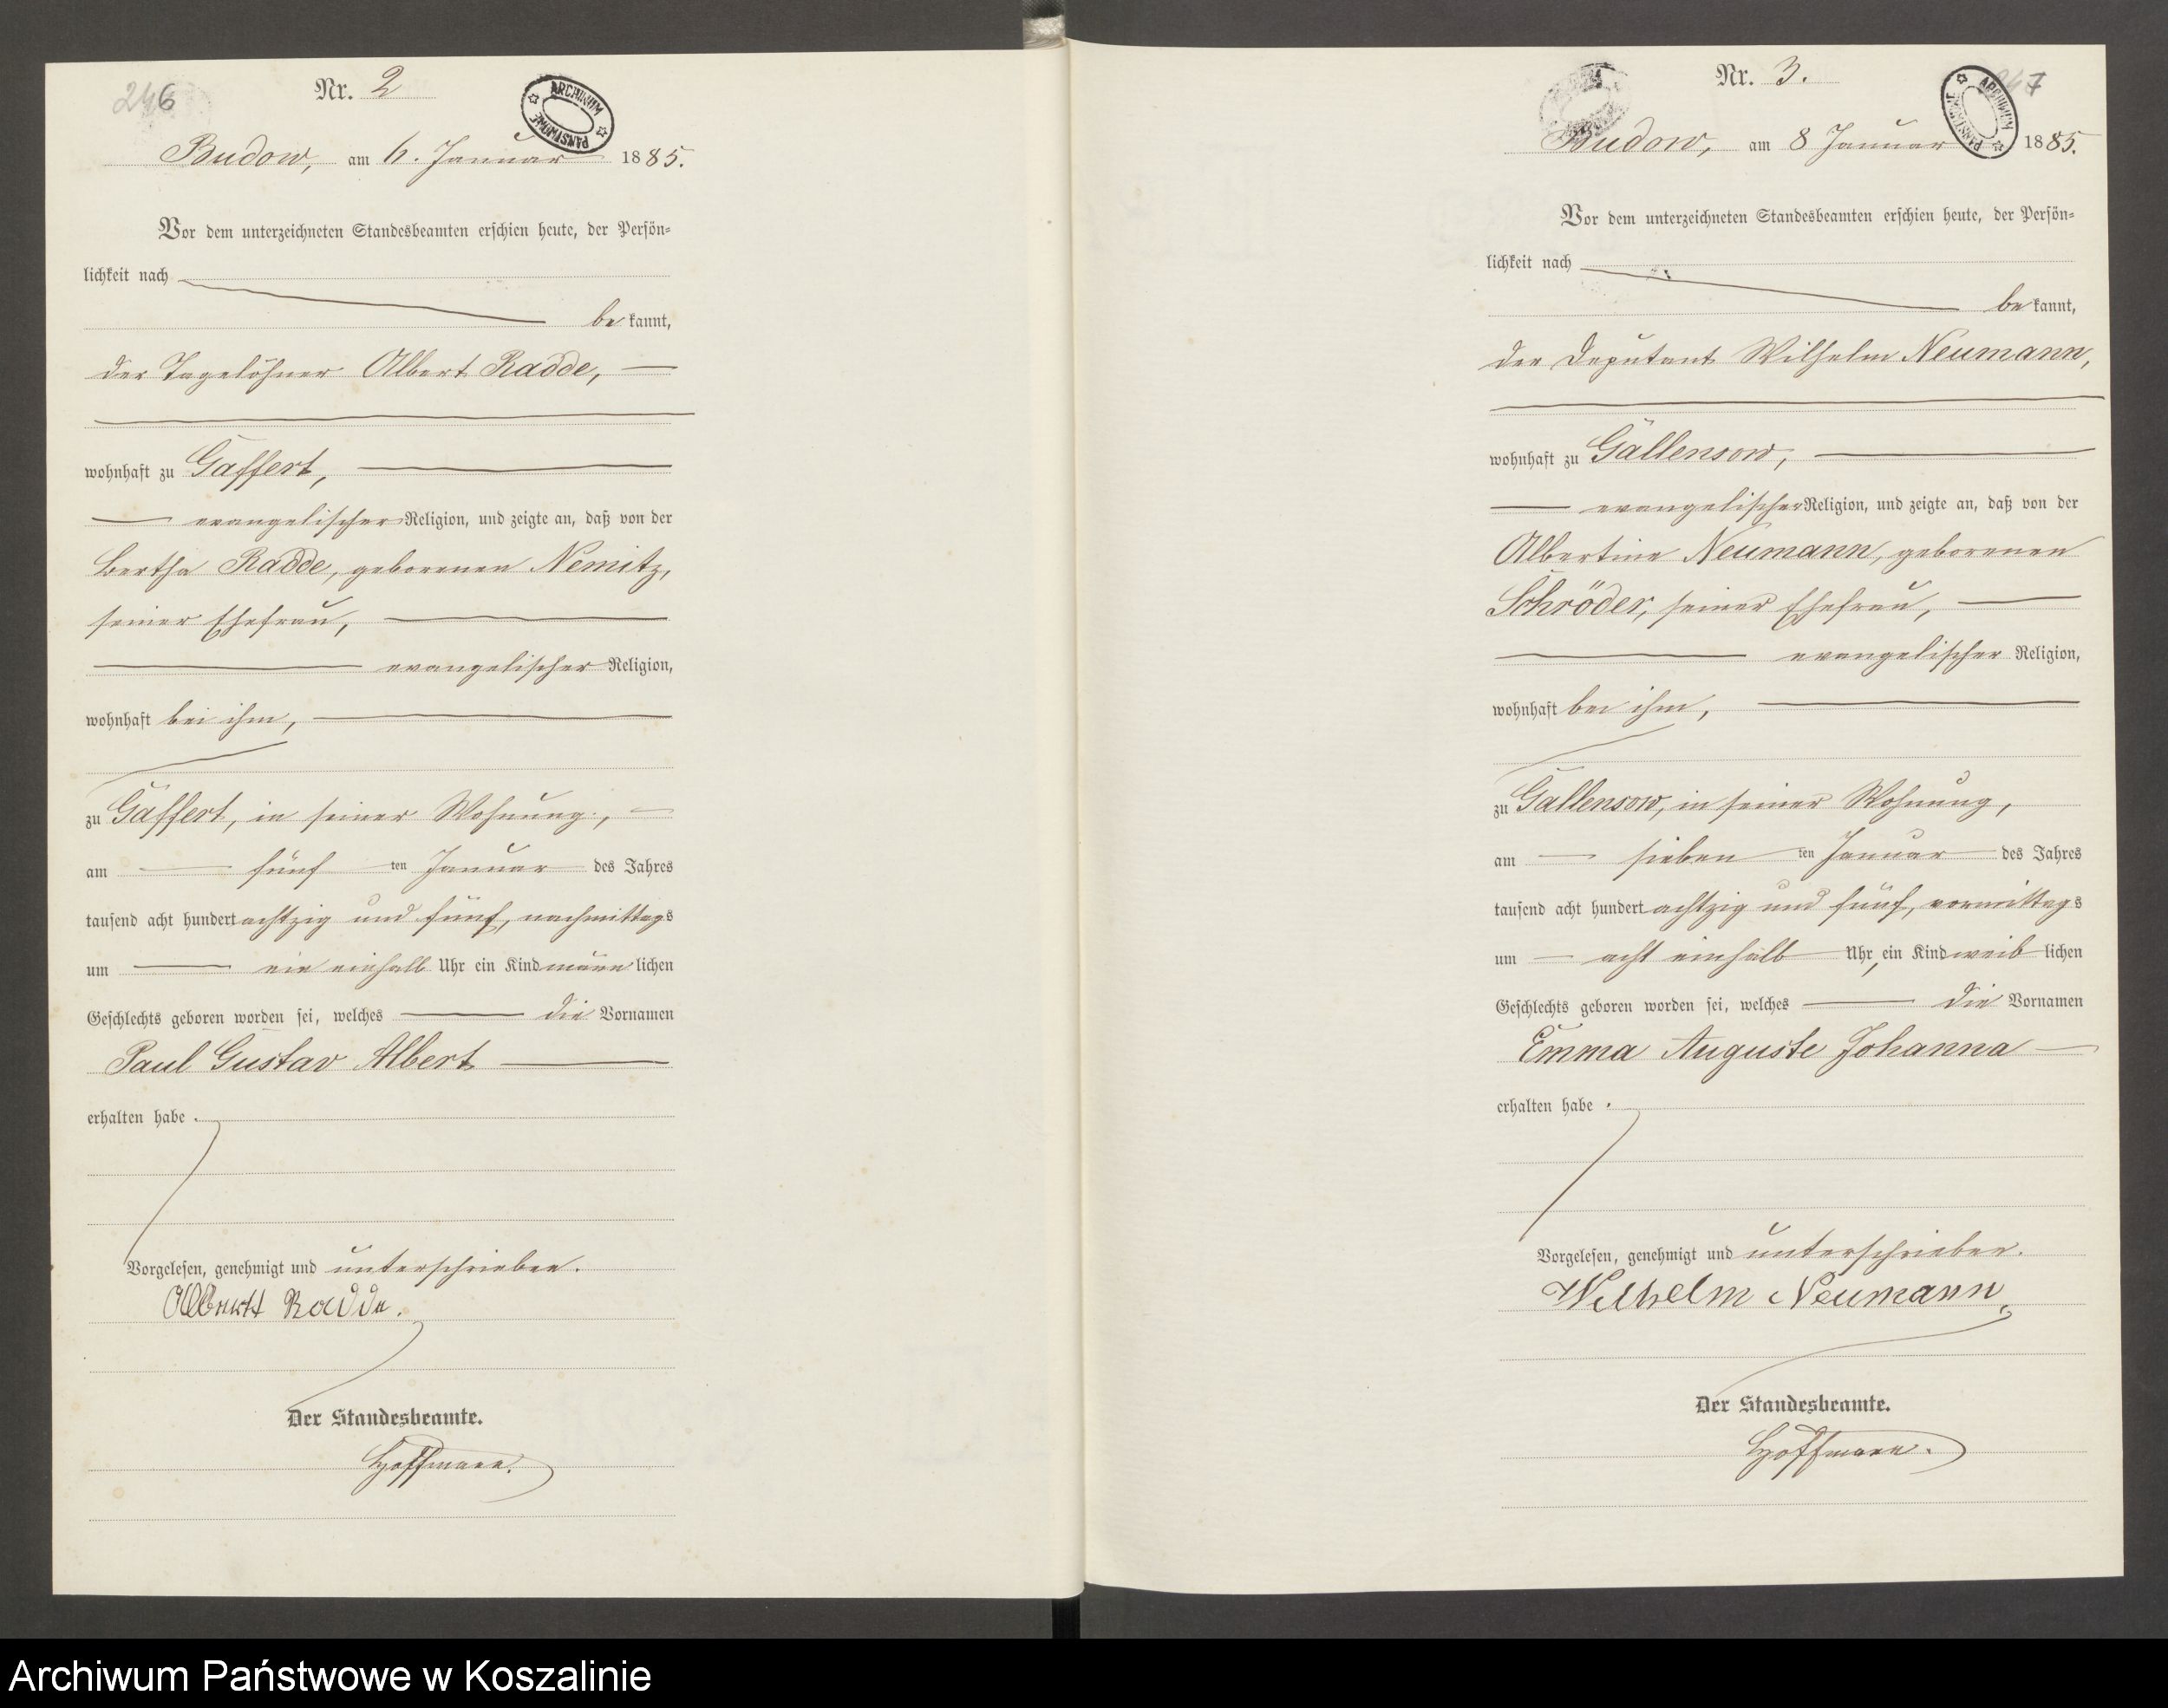 246
Nr. 2
ARCHIWUM PAŃSTWOWE
Budow, am 6. Januar 1885.
Vor dem unterzeichneten Standesbeamten erschien heute, der Persön-
lichkeit nach
be kannt,
der Tagelöhner Albert Radde,
wohnhaft zu Gaffert,
evangelischer Religion, und zeigte an, daß von der
Bertha Radde, geborenen Nemitz,
seiner Ehefrau,
evangelischer Religion,
wohnhaft bei ihm,
zu Gaffert, in seiner Wohnung,
am fünf ten Januar des Jahres
tausend acht hundert achtzig und fünf, nachmittags
um ein einhalb Uhr ein Kind männ lichen
Geschlechts geboren worden sei, welches die Vornamen
Paul Gustav Albert
erhalten habe.
Vorgelesen, genehmigt und unterschrieben.
Albertt Radde.
Der Standesbeamte.
Hoffmann.
247
Nr. 3.
ARCHIWUM PAŃSTWOWE
Budow, am 8 Januar 1885.
Vor dem unterzeichneten Standesbeamten erschien heute, der Persön-
lichkeit nach
be kannt,
der Deputant Wilhelm Neumann,
wohnhaft zu Gallensow,
evangelischer Religion, und zeigte an, daß von der
Albertine Neumann, geborenen
Schröder, seiner Ehefrau,
evangelischer Religion,
wohnhaft bei ihm,
zu Gallensow, in seiner Wohnung,
am sieben ten Januar des Jahres
tausend acht hundert achtzig und fünf, vormittags
um acht einhalb Uhr, ein Kind weib lichen
Geschlechts geboren worden sei, welches die Vornamen
Emma Auguste Johanna
erhalten habe.
Vorgelesen, genehmigt und unterschrieben.
Wilhelm Neumann
Der Standesbeamte.
Hoffmann.
Archiwum Państwowe w Koszalinie